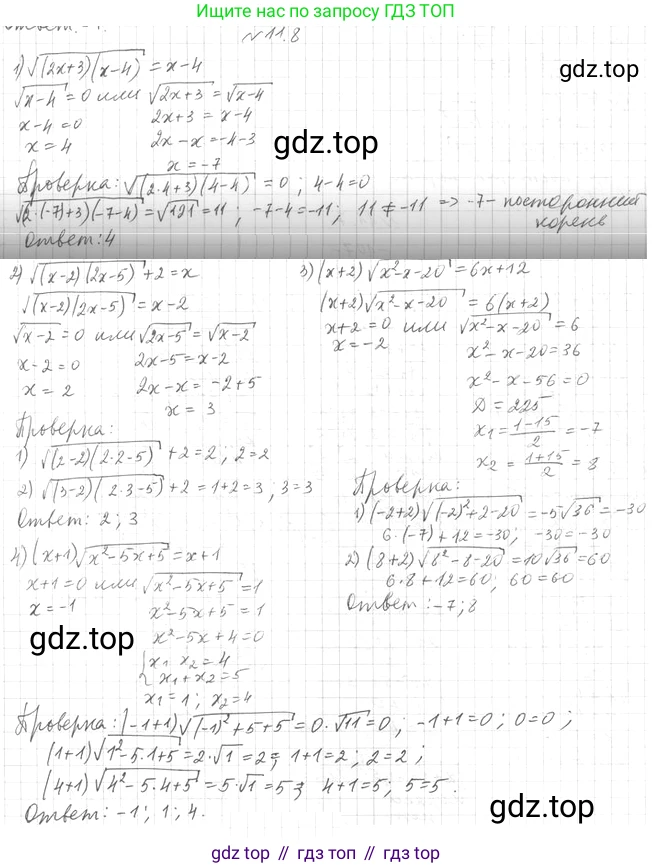 Ищите нас по запросу ГДЗ ТОП
Ответ:
№11.8
1) √((2x+3)(x-4)) = x-4
√(x-4) = 0 или √(2x+3) = √(x-4)
x-4=0 2x+3 = x-4
x = 4 2x-x=-4-3
x = -7
gdz.top
Проверка: √((2·4+3)(4-4)) = 0; 4-4=0
√((2·(-7)+3)(-7-4)) = √121 = 11; -7-4=-11; 11 ≠ -11 => -7- посторонний
корень
Ответ: 4
2) √((x-2)(2x-5)) +2 = x
√((x-2)(2x-5)) = x-2
√(x-2) = 0 или √(2x-5) = √(x-2)
x-2=0 2x-5=x-2
x = 2 2x-x= -2+5
x = 3
Проверка:
1) √((2-2)(2·2-5)) +2=2; 2=2
2) √((3-2)(2·3-5)) +2=1+2=3; 3=3
Ответ: 2; 3
3) (x+2)√(x²-x-20) = 6x+12
(x+2)√(x²-x-20) = 6(x+2)
x+2=0 или √(x²-x-20) = 6
x=-2 x²-x-20=36
x²-x-56=0
D = 225
x₁ = (1-15)/2 = -7
x₂ = (1+15)/2 = 8
Проверка:
1) (-2+2)√((-2)²+2-20) = -5√36 = -30
6·(-7)+12=-30; -30=-30
2) (8+2)√(8²-8-20) = 10√36=60
6·8+12=60; 60=60
Ответ: -7; 8
4) (x+1)√(x²-5x+5) = x+1
x+1=0 или √(x²-5x+5) = 1
x=-1 x²-5x+5 = 1
x²-5x+4=0
{x₁ x₂ = 4
x₁+x₂=5
x₁=1; x₂=4
gdz.top
Проверка: (-1+1)√((-1)²+5+5) = 0·√11=0; -1+1=0; 0=0;
(1+1)√(1²-5·1+5) = 2·√1 = 2; 1+1=2; 2=2;
(4+1)√(4²-5·4+5) = 5·√1 = 5; 4+1=5; 5=5.
Ответ: -1; 1; 4.
gdz.top
gdz.top // gdz.top // gdz.top